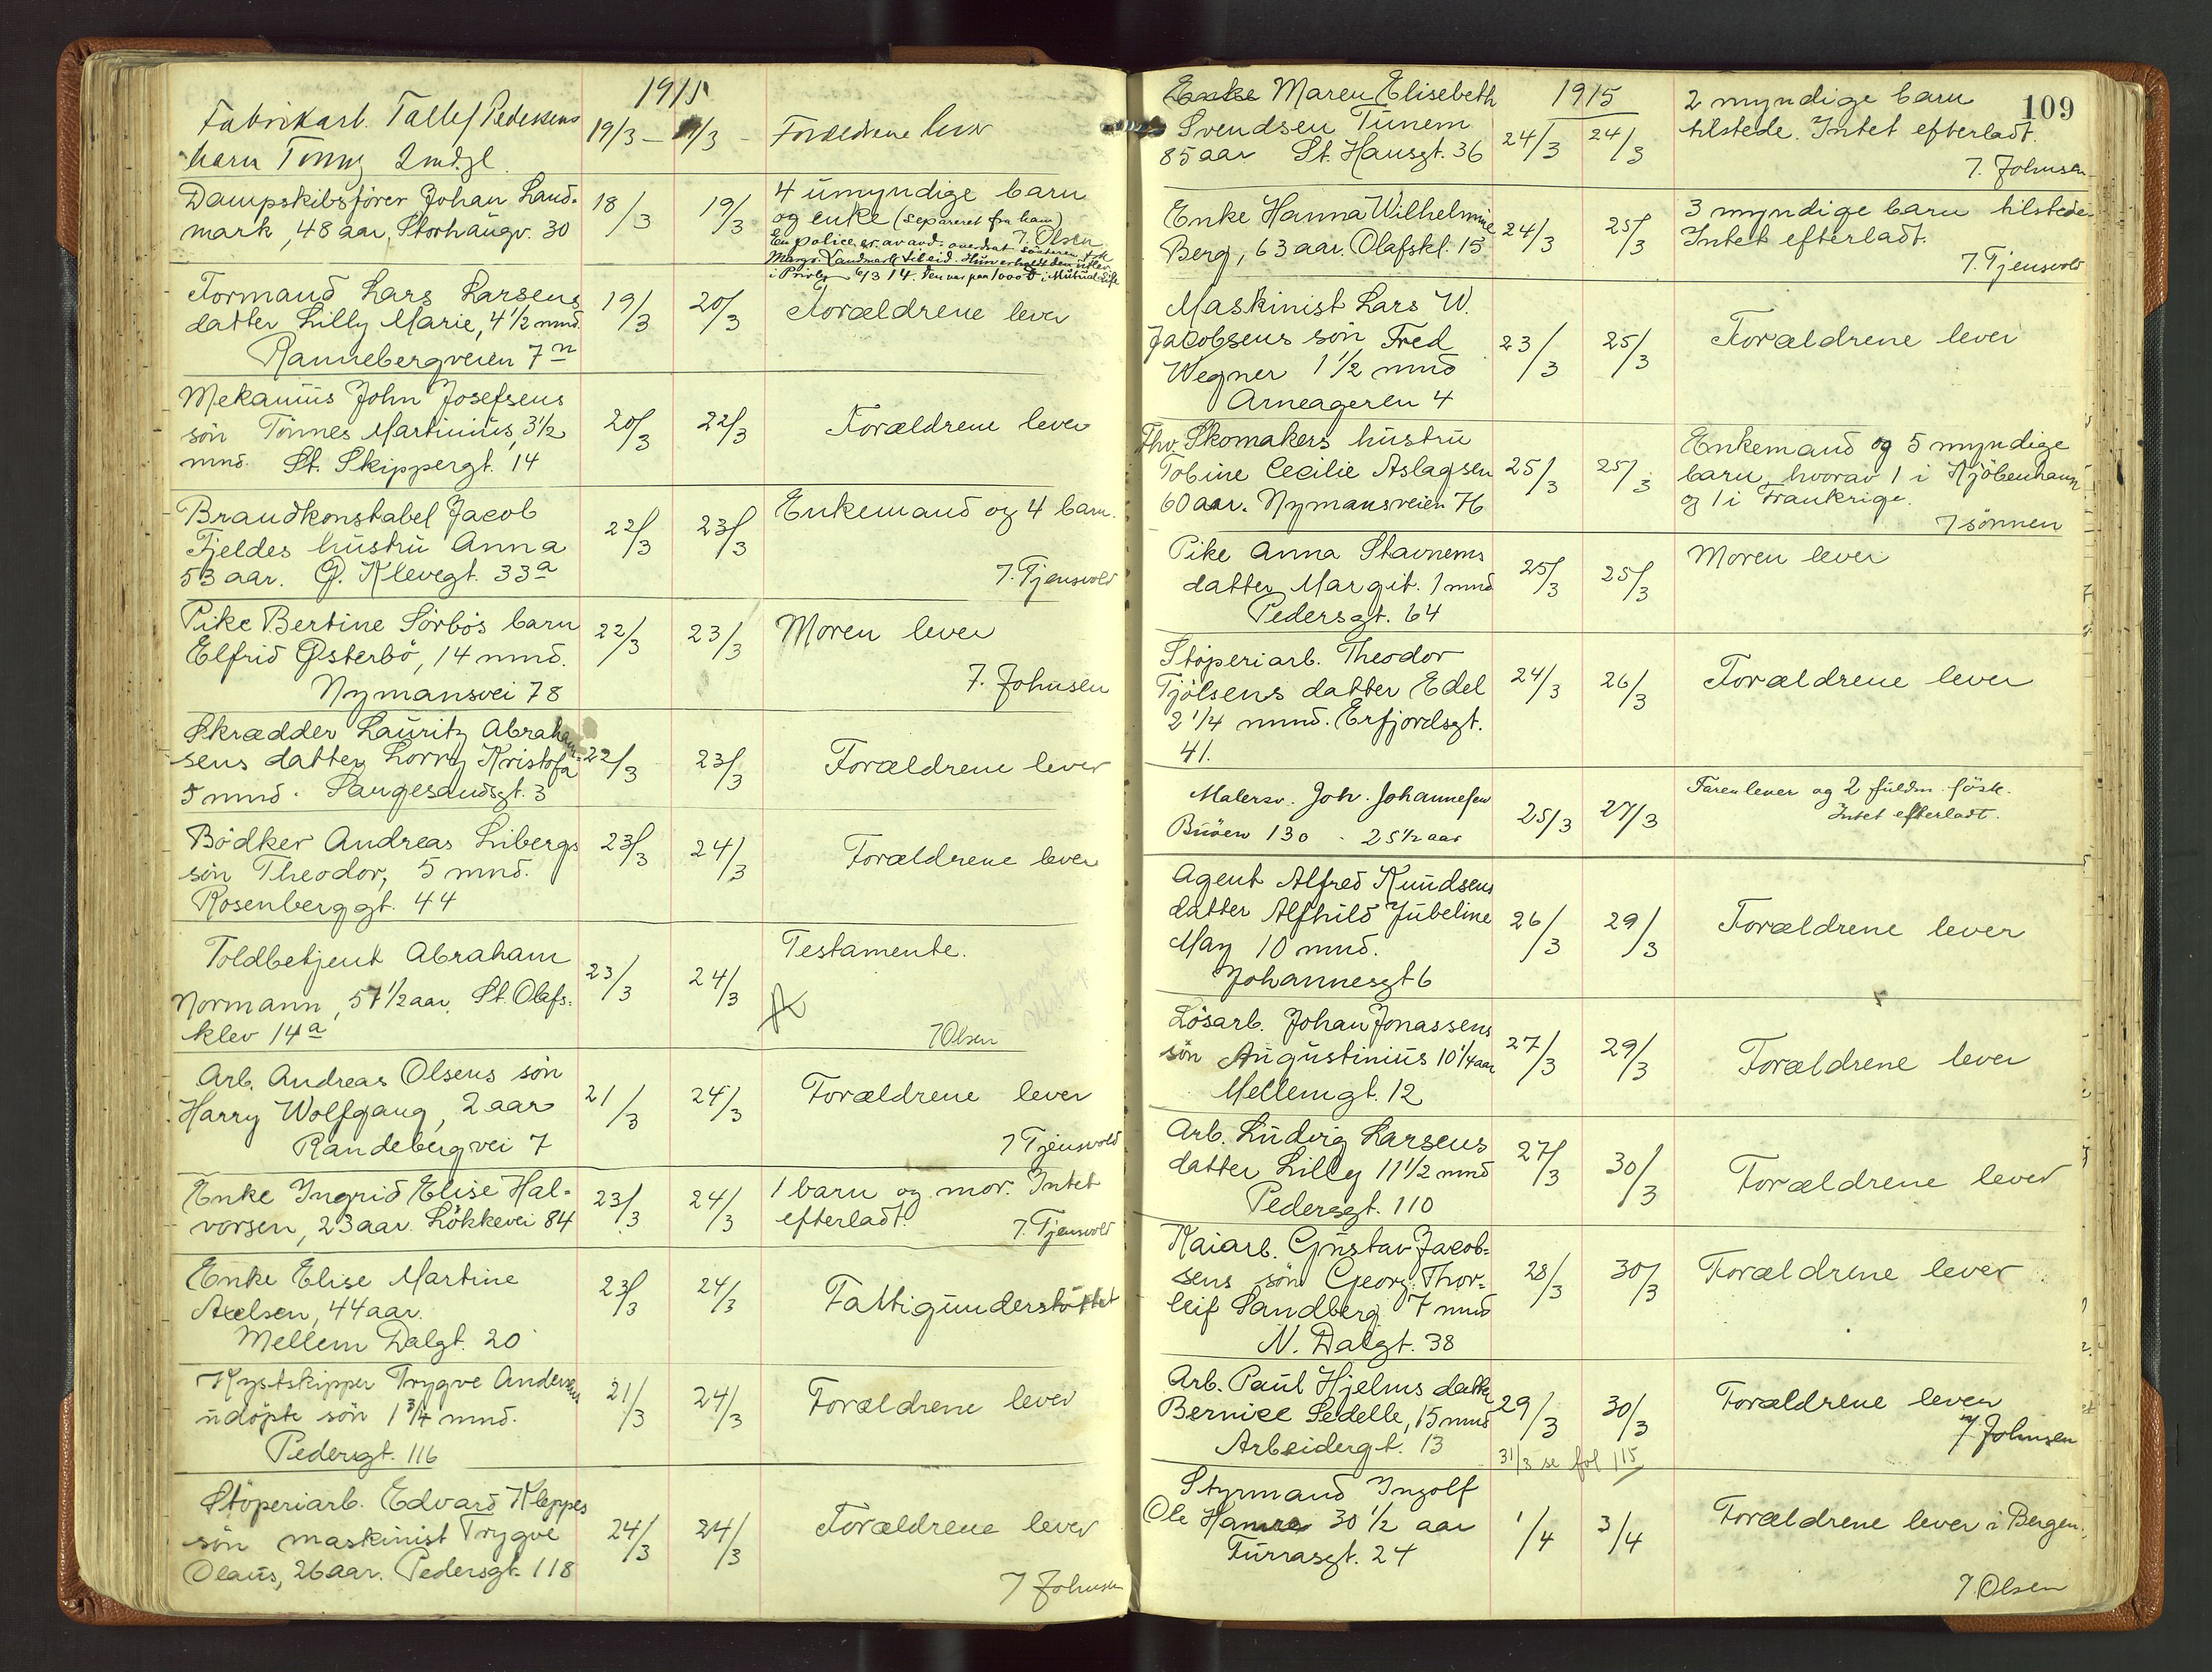 1915
Fabrikarb. Tallef Pedersens
barn Tonny 2 mdgl.
19/3 - /3 - Forældrene lever
Dampskibsförer Johan Land-
mark, 48 aar, Storhaugv. 30
18/3 19/3
4 umyndige barn
og enke (separeret fra ham)
7. Olsen
En police er av avd. overdrat sönteren
Margr. Landmark til eid. Hun erholdt den utlev.
i Privbg 6/3 14. Den var paa 1000 i Mutual Life
Formand Lars Larsens
datter Lilly Marie, 4 1/2 mnd.
Rannebergveien 7 n
19/3 20/3 Forældrene lever
Mekanikus John Josefsens
sön Tönnes Martinius, 3 1/2
mnd. St. Skippergt. 14
20/3 22/3 Forældrene lever
Brandkonstabel Jacob
Fjeldes hustru Anna
53 aar. G. Klevegt. 33 a
22/3 23/3 Enkemand og 4 barn.
7. Tjensvold
Pike Bertine Sörbös barn
Elfrid Österbö, 14 mnd.
Nymansvei 78
22/3 23/3 Moren lever
7. Johnsen
Skrædder Lauritz Abraham-
sens datter Lorry Kristofa
5 mnd. Langesandsgt. 3
22/3 23/3 Forældrene lever
Bödker Andreas Libergs
sön Theodor, 5 mnd.
Rosenberggt. 44
23/3 24/3 Forældrene lever
Toldbetjent Abraham
Normann, 57 1/2 aar. St. Olafs-
klev 14 a
23/3 24/3 Testamente.
7 Olsen
Arb. Andreas Olsens sön
Harry Wolfgang, 2 aar
Randebergvei 7
21/3 24/3 Forældrene lever
7 Tjensvold
Enke Ingrid Elise Hal-
vorsen, 23 aar. Lökkevei 84
23/3 24/3 1 barn og mor. Intet
efterladt.
7. Tjensvold
Enke Elise Martine
Axelsen, 44 aar.
Mellem Dalgt. 20
23/3 24/3 Fattigunderstöttet
Kystskipper Trygve Andersens
udöpte sön 1 3/4 mnd.
Pedersgt. 116
21/3 24/3 Forældrene lever
Stöperiarb. Edvard Kleppes
sön maskinist Trygve
Olaus, 26 aar. Pedersgt. 118
24/3 24/3 Forældrene lever
7 Johnsen
109
1915
Enke Maren Elisebeth
Svendsen Tunem
85 aar St. Hansgt. 36
24/3 24/3 2 myndige barn
tilstede. Intet efterladt.
7. Johnsen
Enke Hanna Wilhelmine
Berg, 63 aar. Olafskl. 15
24/3 25/3 3 myndige barn tilstede.
Intet efterladt.
7. Tjensvold
Maskinist Lars W.
Jacobsens sön Fred
Wegner 1 1/2 mnd
Arneageren 4
23/3 25/3 Forældrene lever
Fhv. Skomakers hustru
Tobine Cecilie Aslagsen
60 aar. Nymansveien 76
25/3 25/3 Enkemand og 5 myndige
barn, hvorav 1 i Kjöbenhavn
og 1 i Frankrige.
7 sönnen
Pike Anna Stavnems
datter Margit. 1 mnd
Pedersgt. 64
25/3 25/3 Moren lever
Stöperiarb. Theodor
Tjölsens datter Edel
2 1/4 mnd. Erfjordsgt.
41.
24/3 26/3 Forældrene lever
Malersv. Joh. Johannesen
Buöen 130 - 25 1/2 aar
25/3 27/3 Faren lever og 2 fuldm. söst.
Intet efterladt.
Agent Alfred Knudsens
datter Alfhild Jubeline
May 10 mnd.
Johannesgt 6
26/3 29/3 Forældrene lever
Lösarb. Johan Jonassens
sön Augustinius 10 1/4 aar
Mellemgt. 12
27/3 29/3 Forældrene lever
Arb. Ludvig Larsens
datter Lilly 11 1/2 mnd
Pedersgt. 110
27/3 30/3 Forældrene lever
Kaiarb. Gustav Jacob-
sens sön Georg Thor-
leif Sandberg 7 mnd
N. Dalgt. 38
28/3 30/3 Forældrene lever
Arb. Paul Hjelms datter
Bernice Sedelle, 15 mnd
Arbeidergt. 13
29/3 30/3 Forældrene lever
7 Johnsen
31/3 se fol 115
Styrmand Ingolf
Ole Hamre 30 1/2 aar
Furrasgt. 24
1/4 3/4 Forældrene lever i Bergen.
7. Olsen